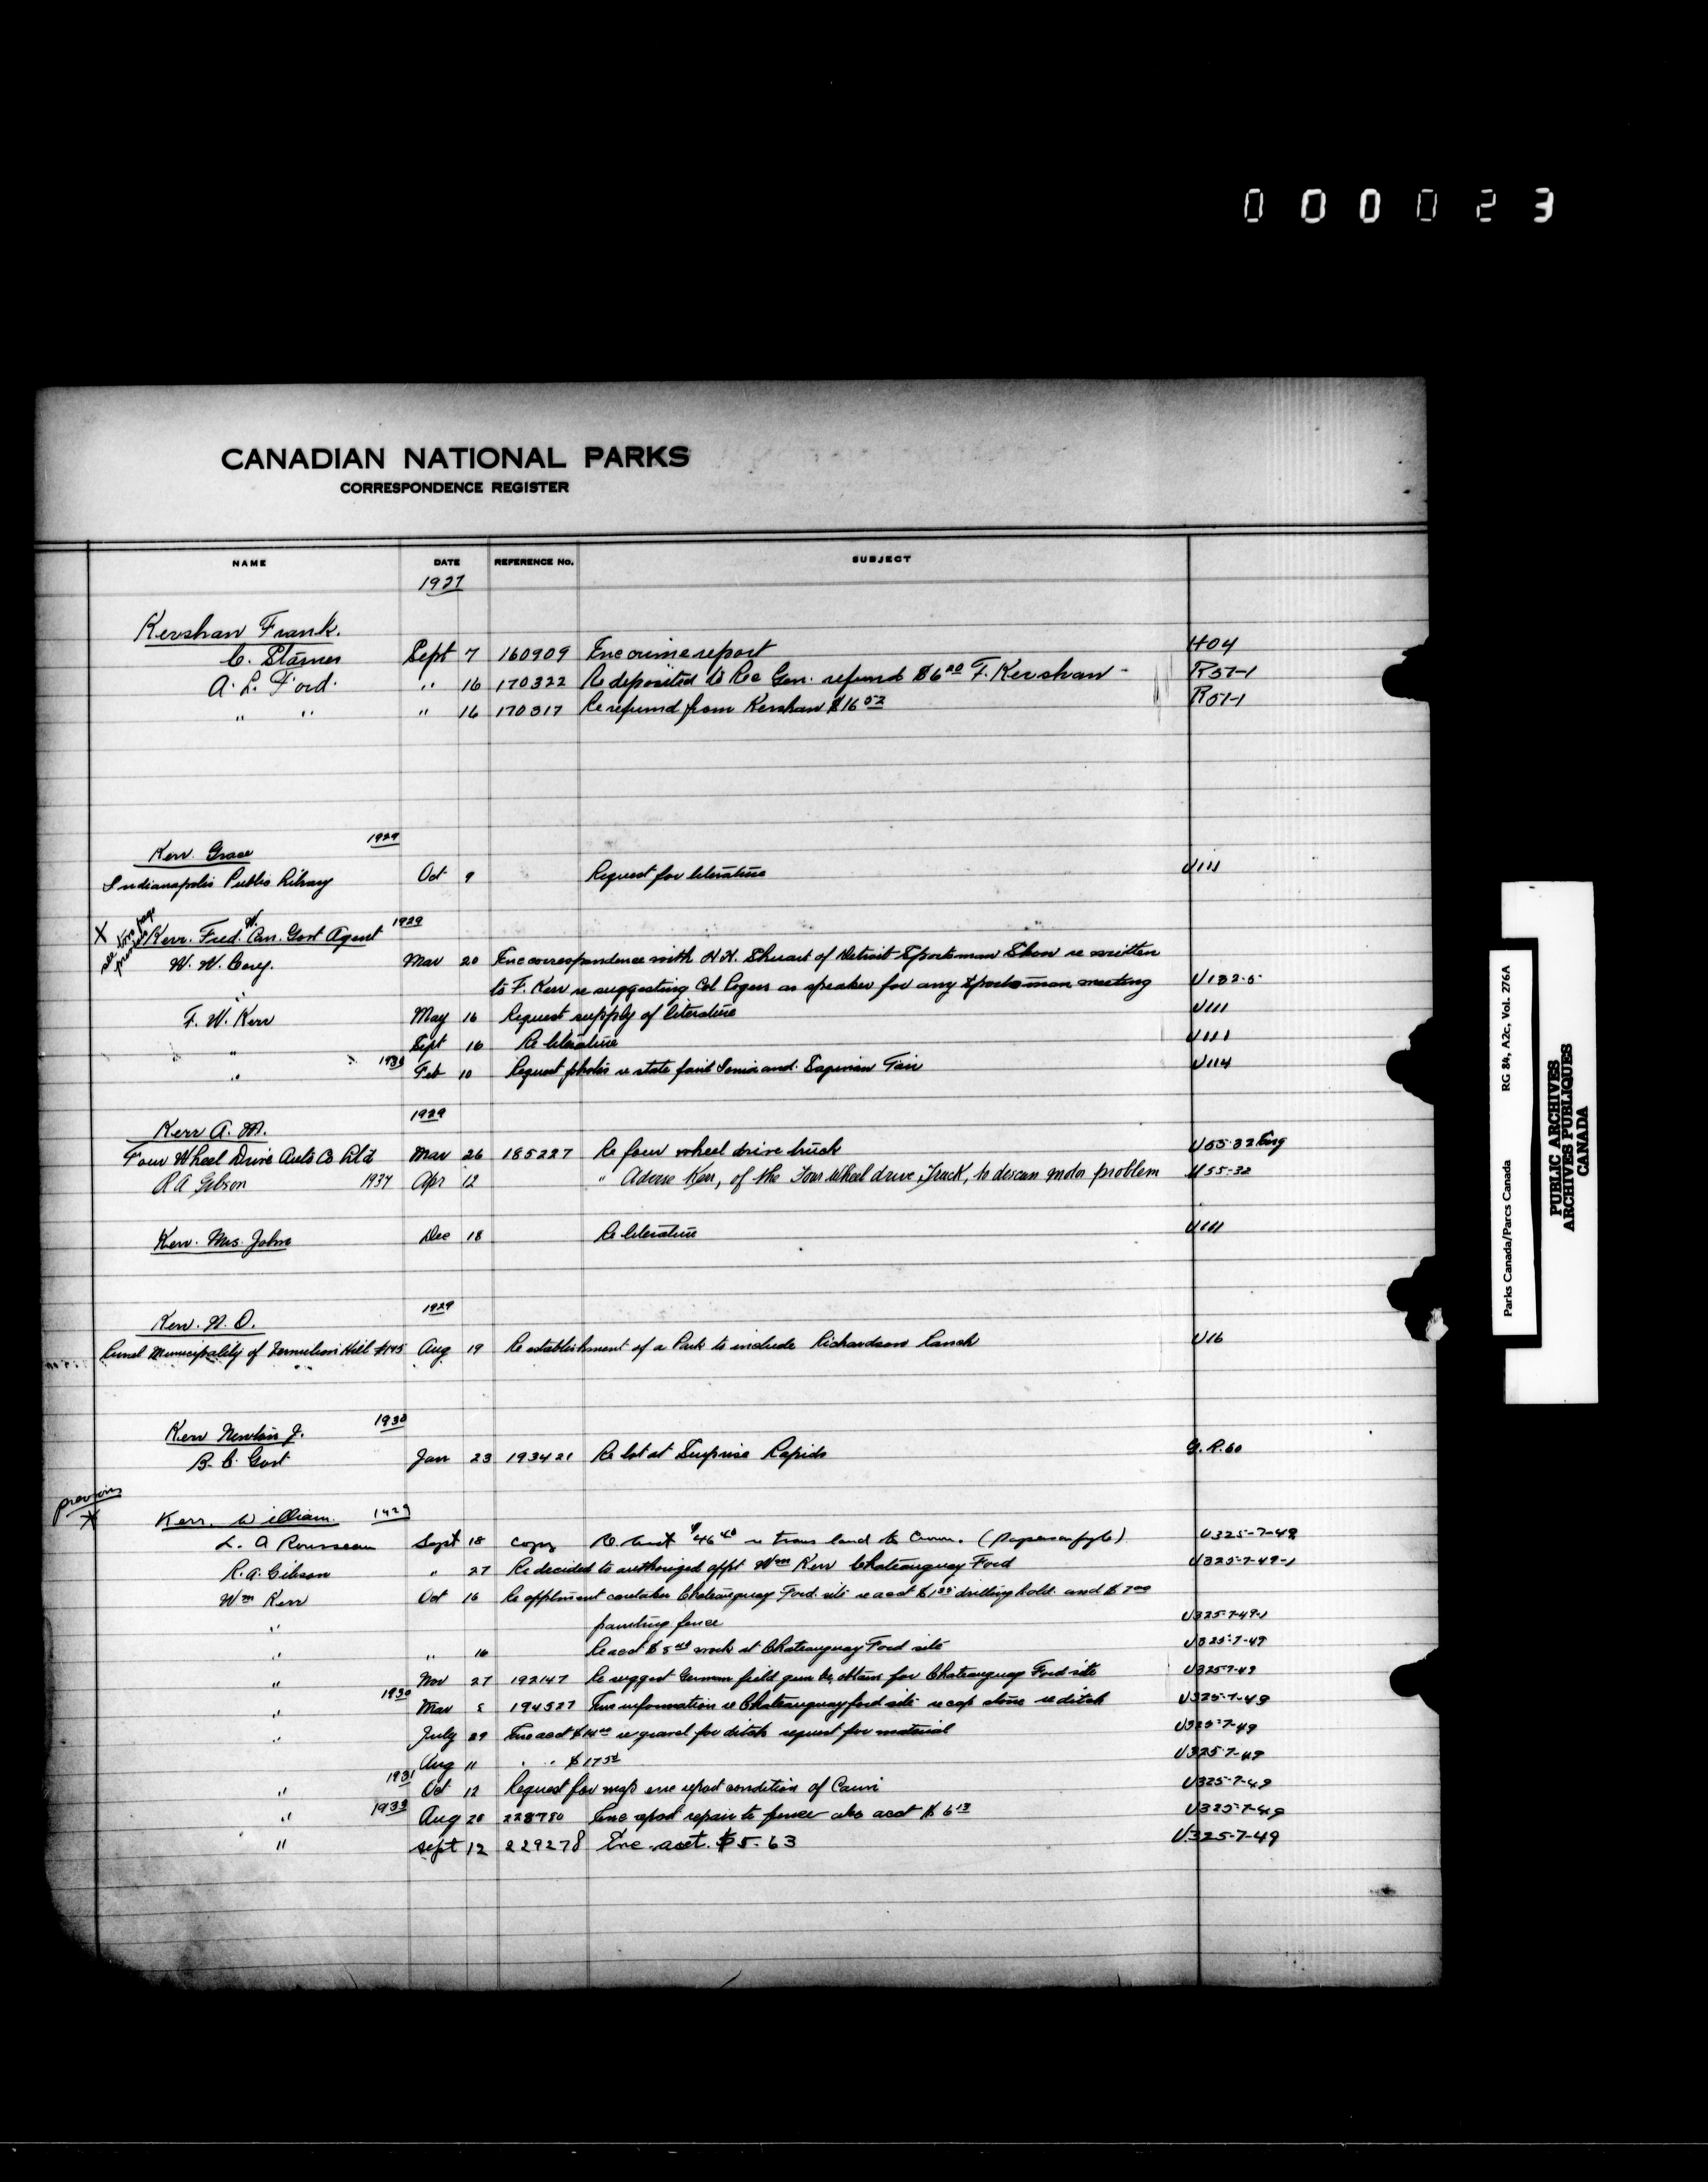 000023
CANADIAN NATIONAL PARKS
CORRESPONDENCE REGISTER
NAME DATE REFERENCE No. SUBJECT
1927
Kershaw Frank.
C. Starnes Sept 7 160909 Enc crime report H04
A. L. Ford. " 16 170322 Re deposited to Rec Gen. refund $6 20 F. Kershaw - R57-1
" " " 16 170317 Re refund from Kershaw $16 52 R57-1
Kerr Grace 1929
Indianapolis Public Library Oct 9 Request for literature U111
X see two page previous Kerr. Fred. W. Can. Govt Agent 1929
W. W. Cory. Mar 20 Enc correspondence with H. H. Stuart of Detroit Sportsman Show re written
to F. Kerr re suggesting Col Rogers as speaker for any sportsman meeting U182-5
F. W. Kerr May 16 Request supply of literature U111
" Sept 16 Re literature U111
" 1930 Feb 10 Request photos re state fair Ionia and Saginaw Fair U114
Kerr A. M. 1929
Four Wheel Drive Auto Co Ltd Mar 26 185227 Re four wheel drive truck U55-32 Eng
R A Gibson 1937 Apr 12 " Advise Kerr, of the Four Wheel drive Truck, to discuss motor problem U55-32
Kerr. Mrs. John Dec 18 Re literature U111
Kerr. N. O. 1929
Rural Municipality of Vermilion Hill #195 Aug 19 Re establishment of a Park to include Richardson Ranch U16
Kerr Newton J. 1930
B. C. Govt Jan 23 193421 Re lot at Surprise Rapids G.R.60
previous X
Kerr. William. 1929
L. A Rousseau Sept 18 copy Re acct $46 40 re trans land to Crown. (Papers on file) U325-7-49
R. A. Gibson " 27 Re decided to authorized appt Wm Kerr Chateauguay Ford U325-7-49-1
Wm Kerr Oct 16 Re apptment caretaker Chateauguay Ford site re acct $1 25 drilling hole and $7 00
" painting fence U325-7-49-1
" " 16 Re acct $5 40 work at Chateauguay Ford site U325-7-49
" Nov 27 192147 Re suggest German field gun be obtain for Chateauguay Ford site U325-7-49
" 1930 Mar 5 194527 Enc information re Chateauguay ford site re cap stone re ditch U325-7-49
" July 29 Enc acct $14 00 re gravel for ditch request for material U325-7-49
Aug 11 " " $17 51 U325-7-49
" 1931 Oct 12 Request for map enc report condition of Cairn U325-7-49
" 1933 Aug 20 228780 Enc report repair to fence also acct $6 13 U325-7-49
" Sept 12 229278 Enc. acct. $5.63 U325-7-49
Parks Canada/Parcs Canada RG 84, A2c, Vol. 276A
PUBLIC ARCHIVES
ARCHIVES PUBLIQUES
CANADA